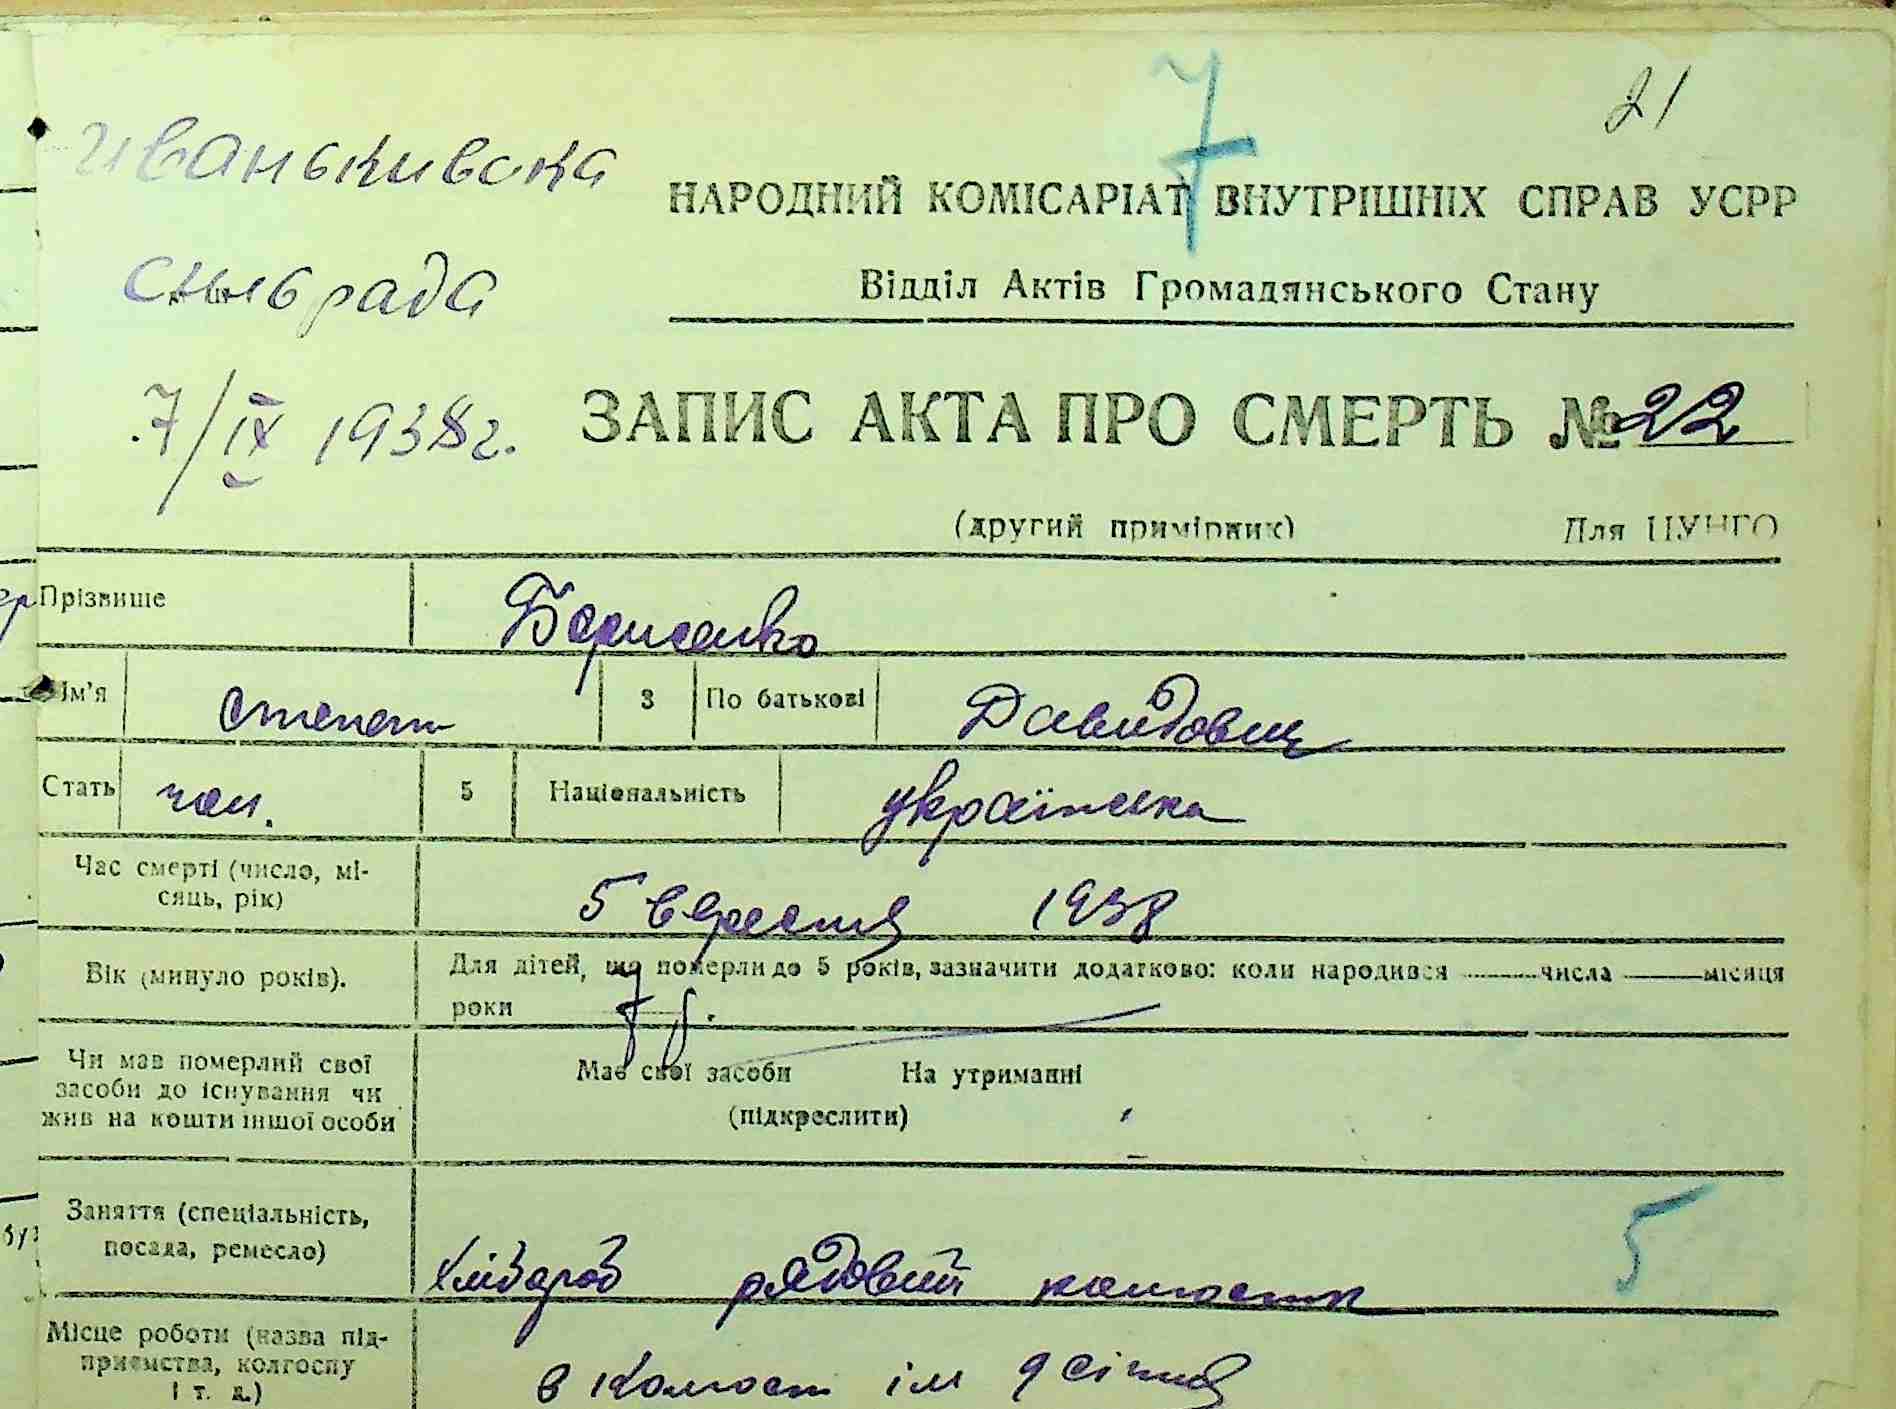 7
21
Иванькивска
НАРОДНИЙ КОМІСАРІАТ ВНУТРІШНІХ СПРАВ УСРР
сильрада
Відділ Актів Громадянського Стану
7/IX 1938 г.
ЗАПИС АКТА ПРО СМЕРТЬ № 22
(другий примірник) Для ЦУНГО
Прізвище Борисенко
Ім'я Степан 3 По батькові Давидович
Стать чол. 5 Національність українська
Час смерті (число, мі-
сяць, рік)
5 вересня 1938
Вік (минуло років).
Для дітей, що померли до 5 років, зазначити додатково: коли народився числа місяця
роки
Чи мав померлий свої
засоби до існування чи
жив на кошти іншої особи
Має свої засоби На утриманні
(підкреслити)
Заняття (спеціальність,
посада, ремесло)
Хлібороб рядовий колгоспн
5
Місце роботи (назва під-
приємства, колгоспу
і т. д.)
в колгосп ім 9 січня